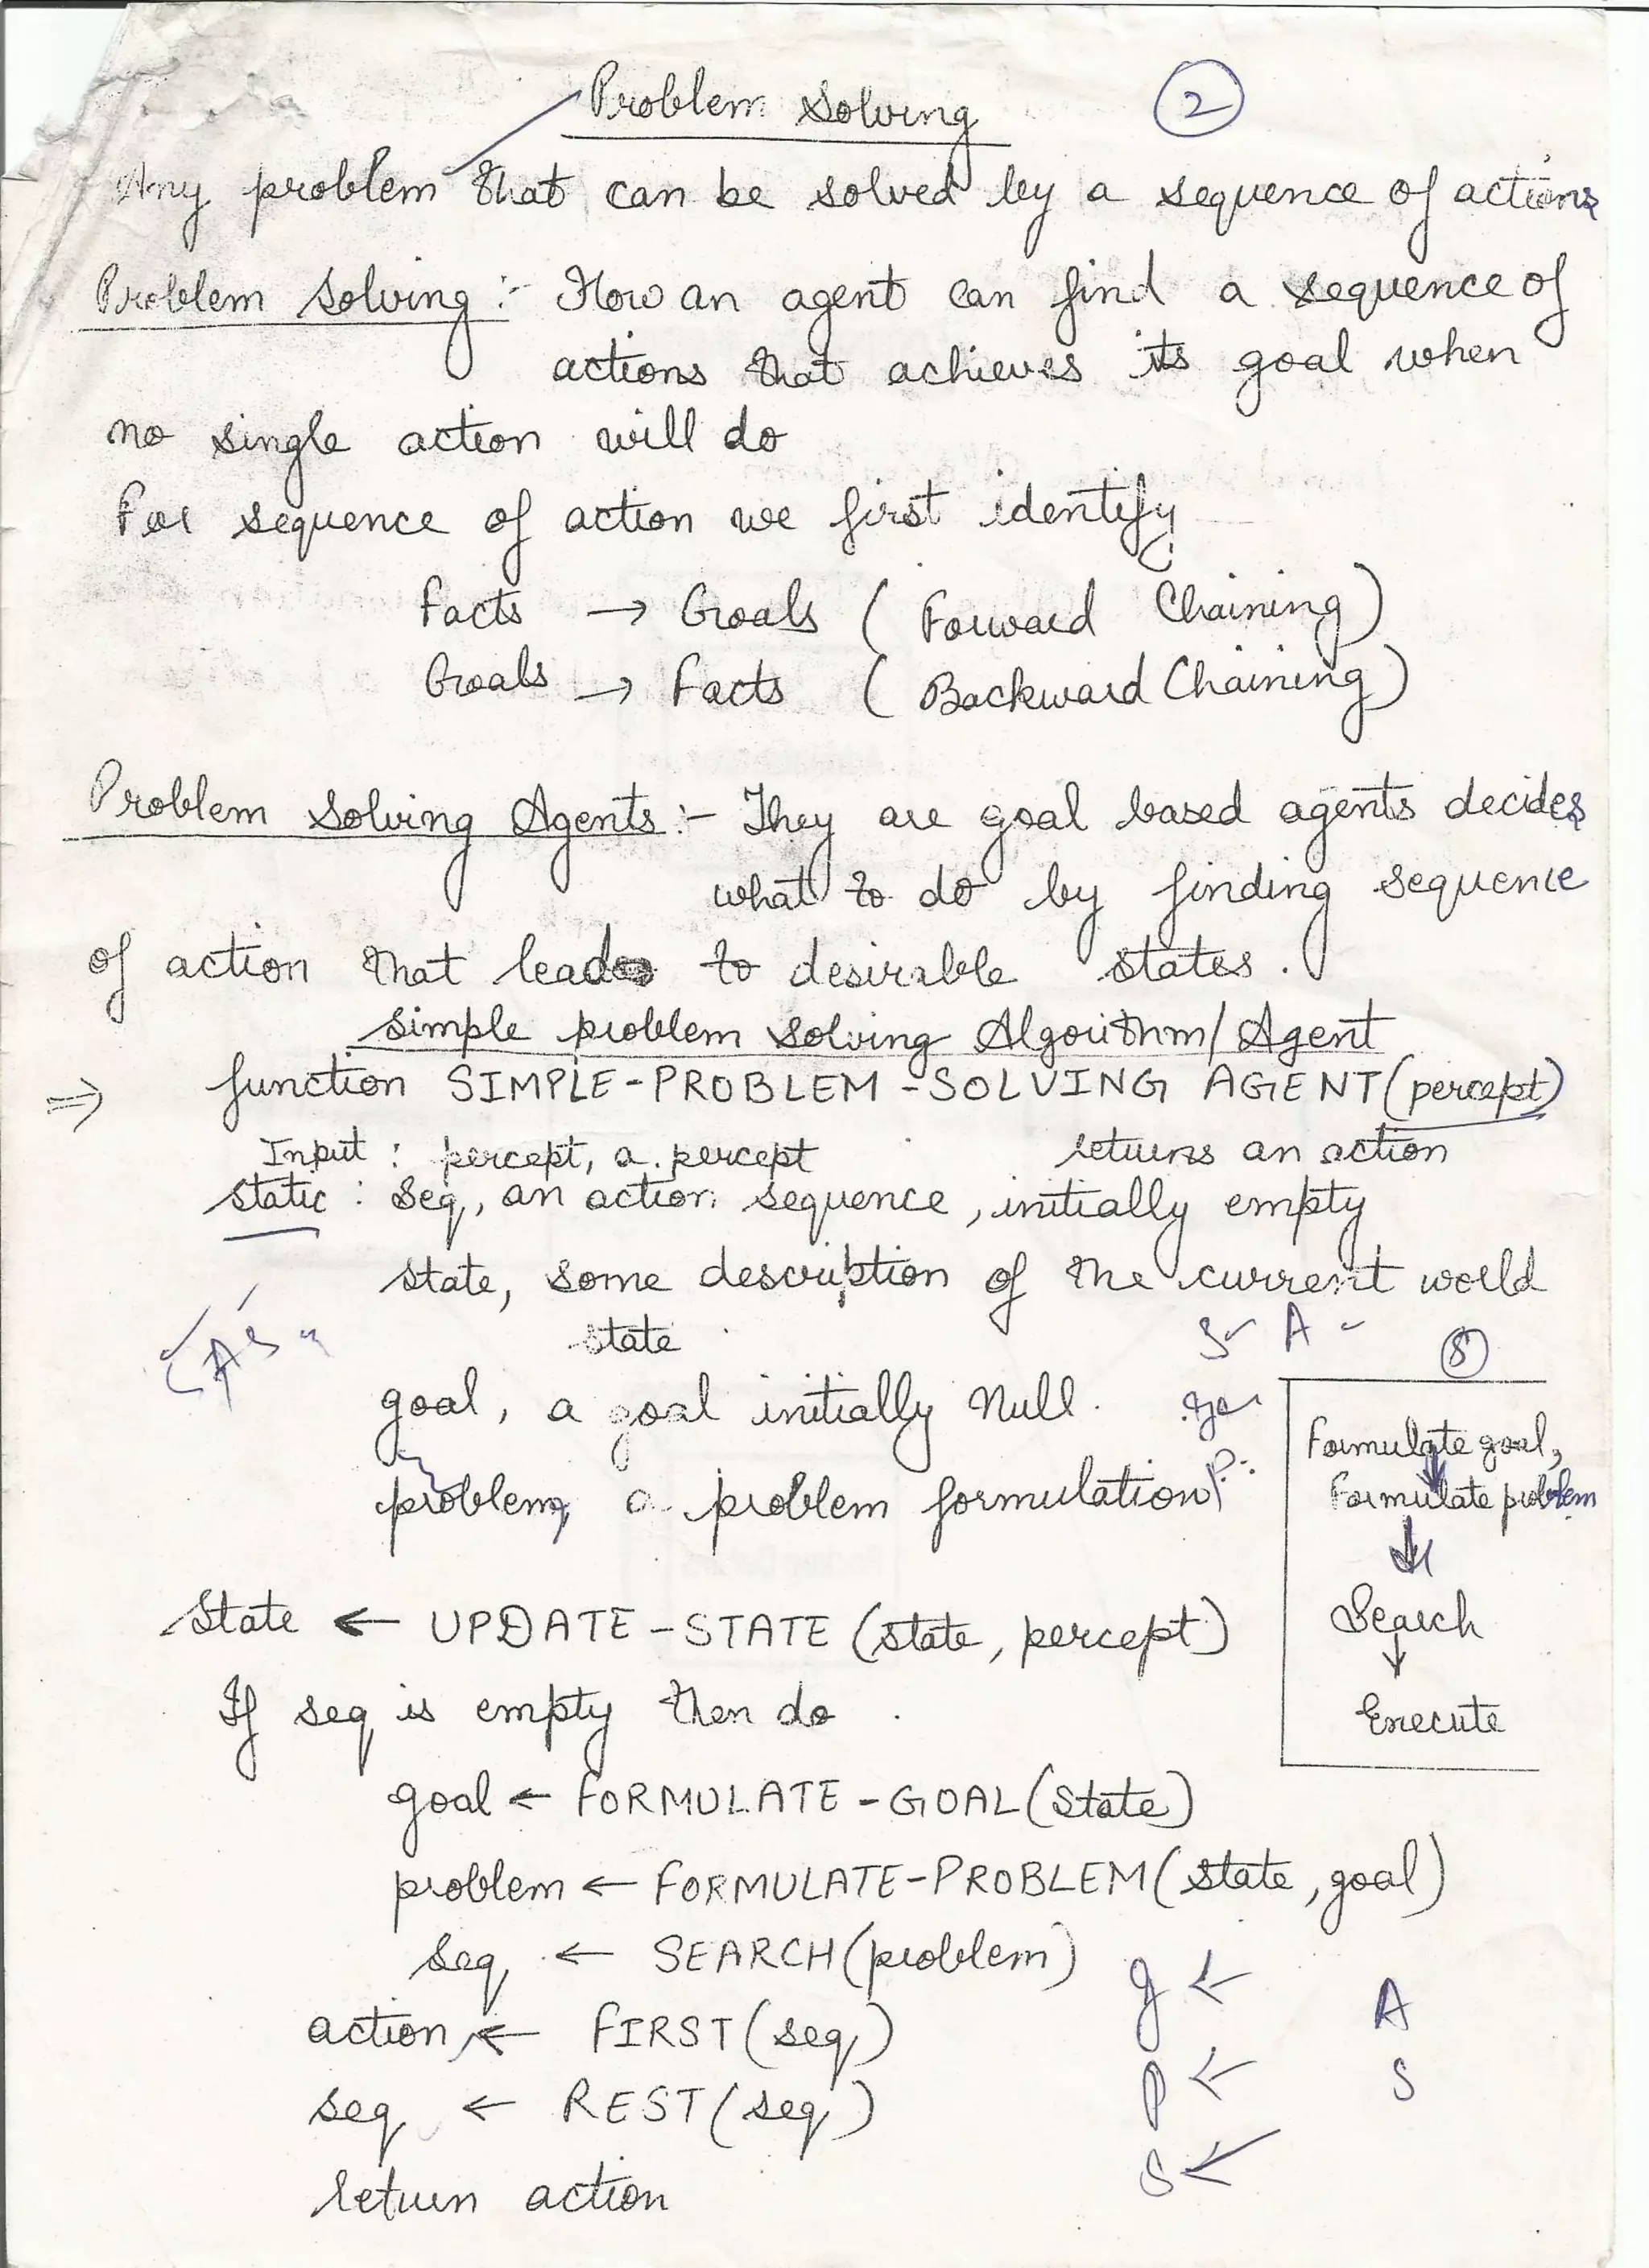 Problem Solving
2
Any problem that can be solved by a sequence of actions
Problem Solving :- How an agent can find a sequence of
actions that achieves its goal when
no single action will do
For sequence of action we first identify
Facts → Goals ( Forward Chaining)
Goals → Facts ( Backward Chaining)
Problem Solving Agents :- They are goal based agents decides
what to do by finding sequence
of action that leads to desirable states.
Simple problem solving Algorithm/Agent
⇒ function SIMPLE-PROBLEM-SOLVING AGENT(percept)
Input : percept, a percept returns an action
static : Seq, an action sequence, initially empty
state, some description of the current world
state
S A
A S
8
goal, a goal initially Null.
go
problem, a problem formulation
P.
Formulate goal,
Formulate problem
↓
Search
↓
Execute
State ← UPDATE-STATE (state, percept)
If seq is empty then do
goal ← FORMULATE-GOAL(state)
problem ← FORMULATE-PROBLEM(state, goal)
seq ← SEARCH(problem)
g ←
A
action ← FIRST(seq)
P ←
S
seq ← REST(seq)
S ←
return action